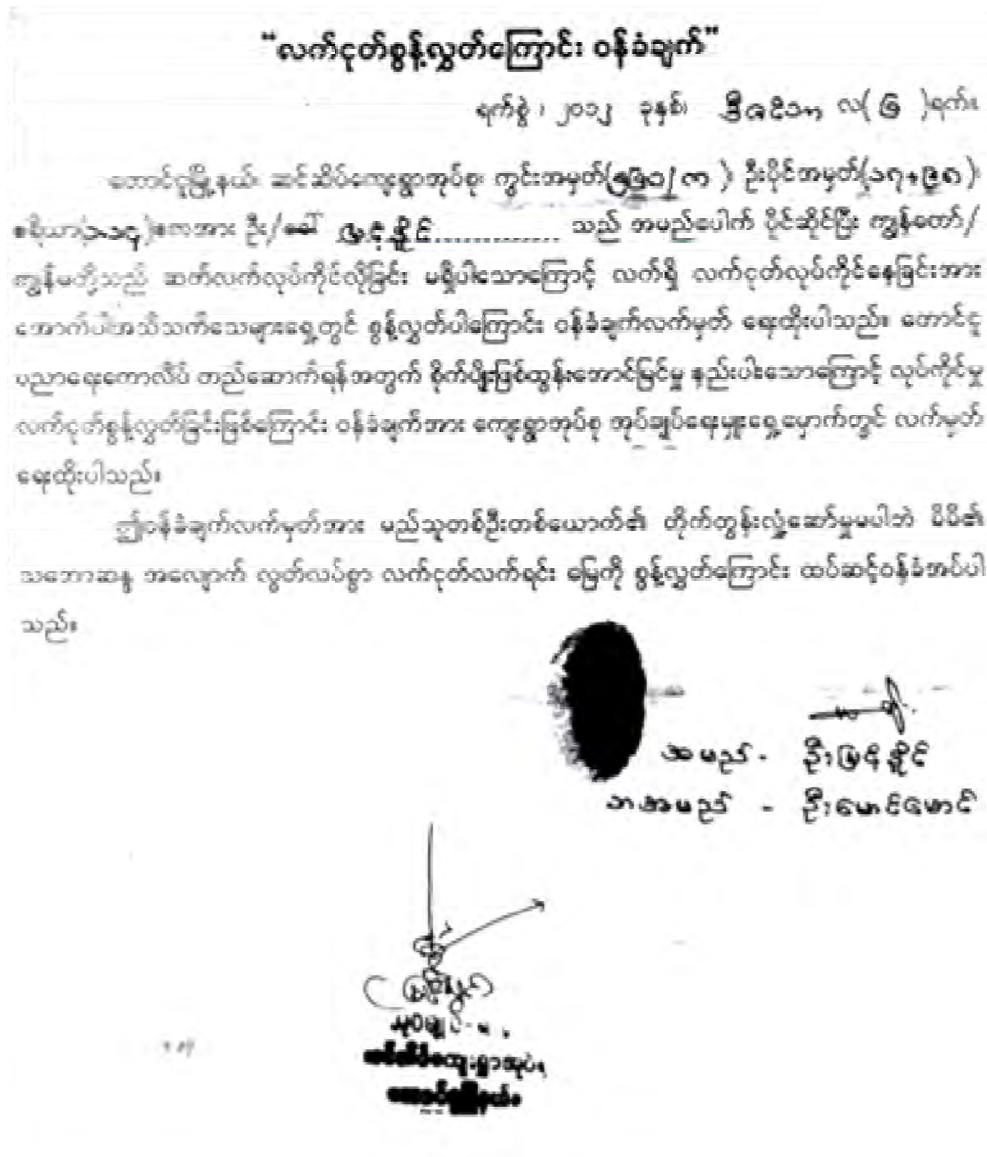 “လက်ငုတ်စွန့်လွှတ်ကြောင်း ဝန်ခံချက်”
ရက်စွဲ၊ ၂၀၁၂ ခုနှစ်၊ ဒီဇင်ဘာ လ( ၆ )ရက်။
တောင်ငူမြို့နယ်၊ ဆင်ဆိပ်ကျေးရွာအုပ်စု၊ ကွင်းအမှတ် ဦးပိုင်အမှတ်
ဧရိယာ ဧကအား ဦး/ဒေါ် မြင့်နိုင်.............. သည် အမည်ပေါက် ပိုင်ဆိုင်ပြီး ကျွန်တော်/
ကျွန်မတို့သည် ဆက်လက်လုပ်ကိုင်လိုခြင်း မရှိပါသောကြောင့် လက်ရှိ လက်ငုတ်လုပ်ကိုင်နေခြင်းအား
အောက်ပါအသိသက်သေများရှေ့တွင် စွန့်လွှတ်ပါကြောင်း ဝန်ခံချက်လက်မှတ် ရေးထိုးပါသည်။ တောင်ငူ
ပညာရေးကောလိပ် တည်ဆောက်ရန်အတွက် စိုက်ပျိုးဖြစ်ထွန်းအောင်မြင်မှု နည်းပါးသောကြောင့် လုပ်ကိုင်မှု
လက်ငုတ်စွန့်လွှတ်ခြင်းဖြစ်ကြောင်း ဝန်ခံချက်အား ကျေးရွာအုပ်စု အုပ်ချုပ်ရေးမှူးရှေ့မှောက်တွင် လက်မှတ်
ရေးထိုးပါသည်။
ဤဝန်ခံချက်လက်မှတ်အား မည်သူတစ်ဦးတစ်ယောက်၏ တိုက်တွန်းလှုံ့ဆော်မှုမပါဘဲ မိမိ၏
သဘောဆန္ဒ အလျောက် လွတ်လပ်စွာ လက်ငုတ်လက်ရင်း မြေကို စွန့်လွှတ်ကြောင်း ထပ်ဆင့်ဝန်ခံအပ်ပါ
သည်။
အမည် - ဦးမြင့်နိုင်
ဘအမည် - ဦးမောင်မောင်
ကျေးရွာအုပ်စု